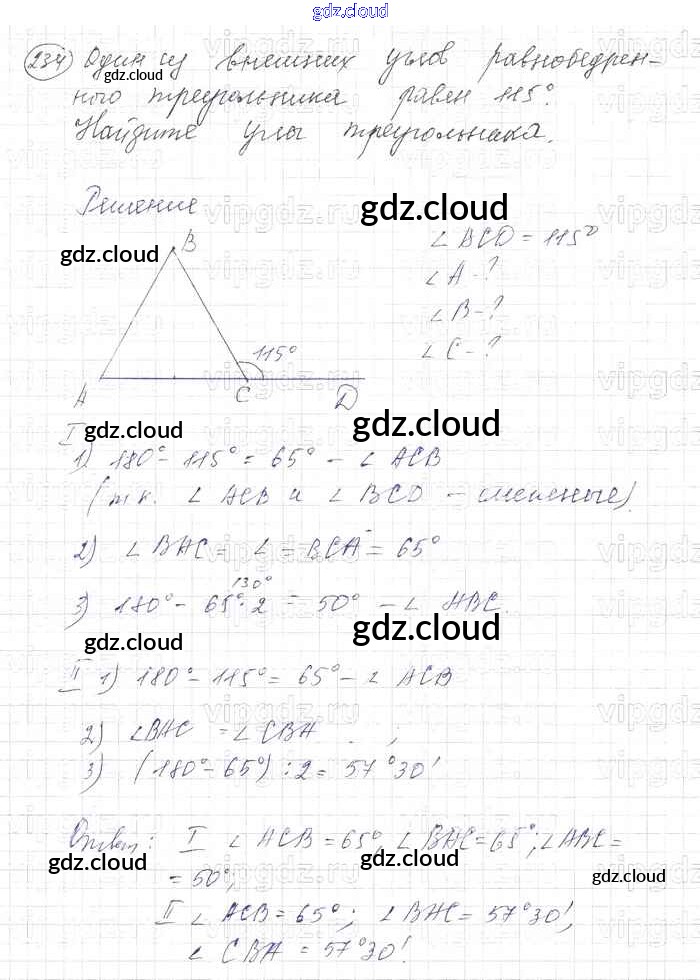 gdz.cloud
234) Один из внешних углов равнобедрен-
gdz.cloud
ного треугольника равен 115°.
Найдите углы треугольника.
Решение
gdz.cloud
B
∠BCD = 115°
gdz.cloud
∠A - ?
∠B - ?
115°
∠C - ?
A C D
I
gdz.cloud gdz.cloud
1) 180° - 115° = 65° - ∠ACB
(т.к. ∠ACB и ∠BCD - смежные).
2) ∠BAC = ∠ = BCA = 65°
130°
3) 180° - 65°·2 = 50° - ∠ABC.
gdz.cloud gdz.cloud
II 1) 180° - 115° = 65° - ∠ACB
2) ∠BAC = ∠CBA ;
3) (180° - 65°) : 2 = 57°30'
Ответ: I ∠ACB = 65°, ∠BAC = 65°; ∠ABC =
gdz.cloud gdz.cloud
= 50°;
gdz.cloud
II ∠ACB = 65°; ∠BAC = 57°30',
∠CBA = 57°30'.
gdz.cloud
gdz.cloud